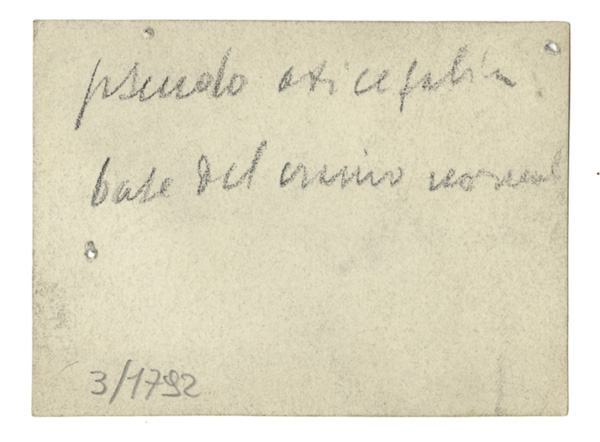 pseudo oxicefalia
base del cranio normal
3/1792